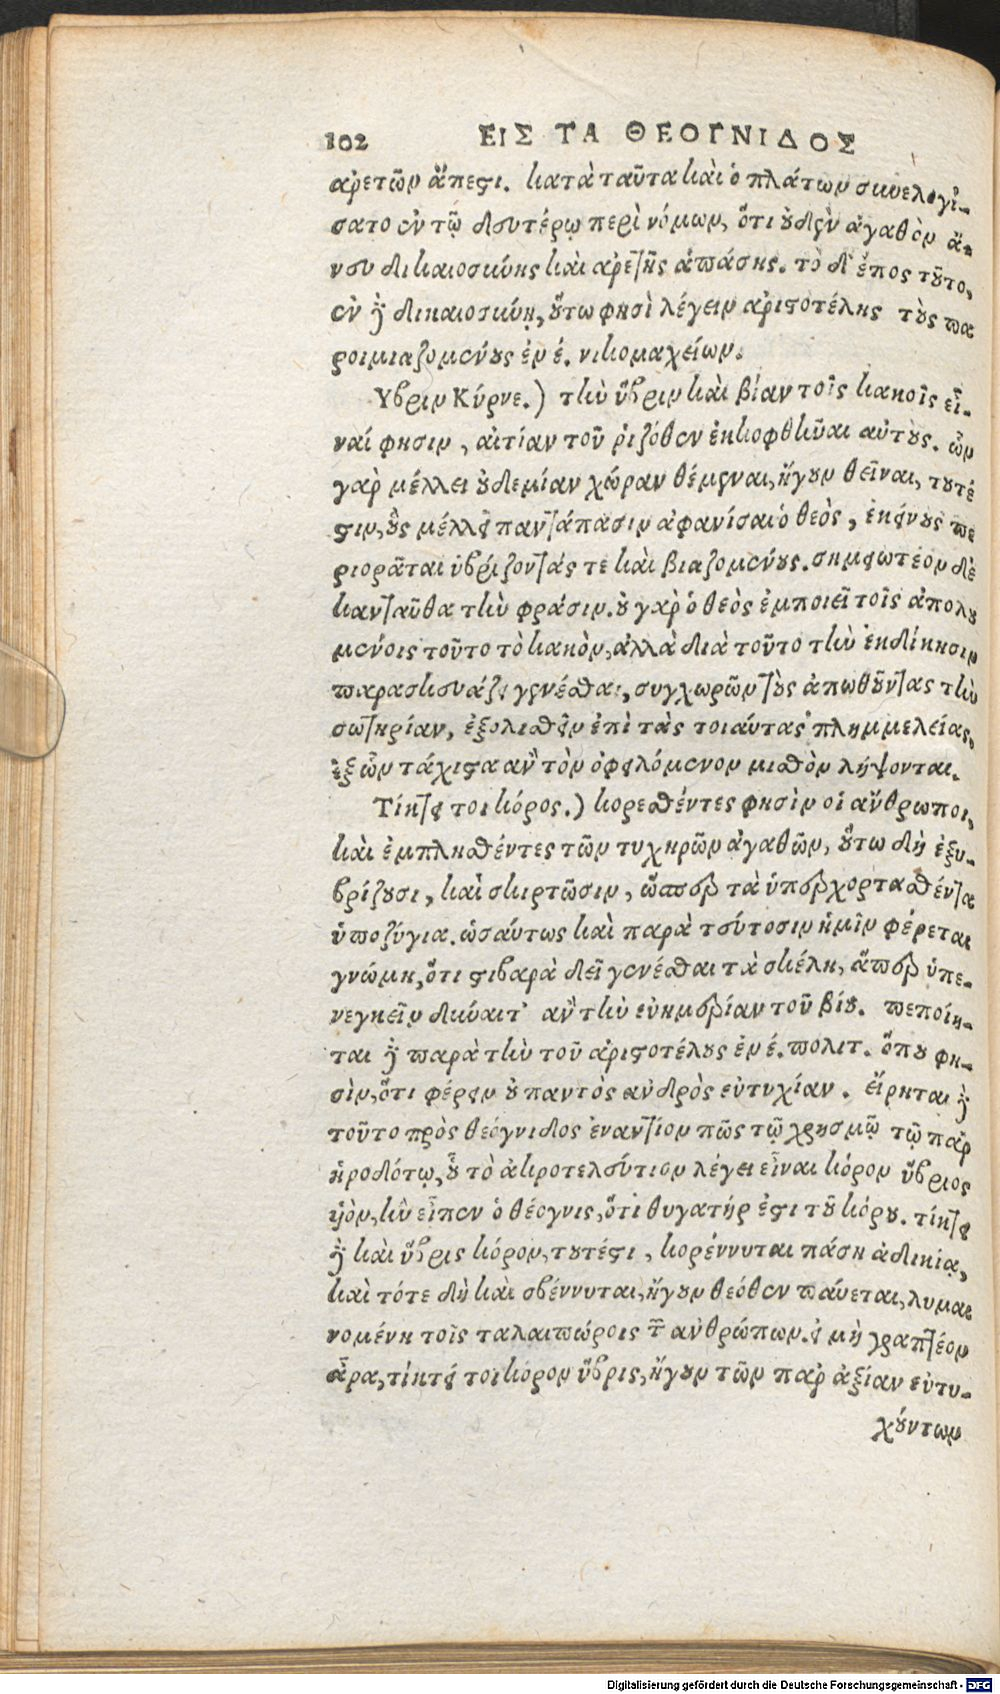 102 ΕΙΣ ΤΑ ΘΕΟΓΝΙΔΟΣ
ἀρετῶν ἄπεστι. κατὰ ταῦτα καὶ ὁ πλάτων συνελογί-
σατο ἐν τῷ δευτέρῳ περὶ νόμων, ὅτι οὐδὲν ἀγαθὸν ἄ-
νευ δικαιοσύνης καὶ ἀρετῆς ἁπάσης. τὸ δ' ἔπος τοῦτο,
ἐν δὲ δικαιοσύνῃ, οὕτω φησὶ λέγειν ἀριστοτέλης τοὺς πα
ροιμιαζομένους ἐν έ. νικομαχείων.
Υβριν Κύρνε.) τὴν ὕβριν καὶ βίαν τοῖς κακοῖς εἶ-
ναί φησιν, αἰτίαν τοῦ ῥιζόθεν ἐκκοφθῆναι αὐτούς. ὧν
γὰρ μέλλει οὐδεμίαν χώραν θέμεναι, ἤγουν θεῖναι, τουτέ
στιν, οὓς μέλλει παντάπασιν ἀφανίσαι ὁ θεὸς, ἐκείνους πε
ριορᾶται ὑβρίζοντάς τε καὶ βιαζομένους. σημειωτέον δὲ
κανταῦθα τὴν φράσιν. οὐ γὰρ ὁ θεὸς ἐμποιεῖ τοῖς ἀπολου
μένοις τοῦτο τὸ κακὸν, ἀλλὰ διὰ τοῦτο τὴν ἐκδίκησιν
παρασκευάζει γενέσθαι, συγχωρῶν τοὺς ἀπωθοῦντας τὴν
σωτηρίαν, ἐξολισθεῖν ἐπὶ τὰς τοιαύτας πλημμελείας,
ἐξ ὧν τάχιστα ἂν τὸν ὀφειλόμενον μισθὸν λήψονται.
Τίκτει τοι κόρος.) κορεσθέντες φησὶν οἱ ἄνθρωποι,
καὶ ἐμπλησθέντες τῶν τυχηρῶν ἀγαθῶν, οὕτω δὴ ἐξυ-
βρίζουσι, καὶ σκιρτῶσιν, ὥσπερ τὰ ὑπερχορτασθέντα
ὑποζύγια. ὡσαύτως καὶ παρὰ τεύτοσιν ἡμῖν φέρεται
γνώμη, ὅτι στιβαρὰ δεῖ γενέσθαι τὰ σκέλη, ἅπερ ὑπε-
νεγκεῖν δύναιτ' ἂν τὴν εὐημερίαν τοῦ βίου. πεποίη-
ται δὲ παρὰ τὴν τοῦ ἀριστοτέλους ἐν έ. πολιτ. ὅπου φη-
σὶν, ὅτι φέρειν οὐ παντὸς ἀνδρὸς εὐτυχίαν. εἴρηται δὲ
τοῦτο πρὸς θεόγνιδος ἐναντίον πῶς τῷ χρησμῷ τῷ παρ
ἡροδότῳ, οὗ τὸ ἀκροτελεύτιον λέγει εἶναι κόρον ὕβριος
ὑὸν, ἣν εἶπεν ὁ θέογνις, ὅτι θυγατήρ ἐστι τοῦ κόρου. τίκτει
δὲ καὶ ὕβρις κόρον, τουτέστι, κορέννυται πάσῃ ἀδικίᾳ,
καὶ τότε δὴ καὶ σβέννυται, ἤγουν θεόθεν παύεται, λυμαι
νομένη τοῖς ταλαιπώροις τῶν ἀνθρώπων. εἰ μὴ γραπτέον
ἆρα, τίκτει τοι κόρον ὕβρις, ἤγουν τῶν παρ ἀξίαν εὐτυ-
χούντων
Digitalisierung gefördert durch die Deutsche Forschungsgemeinschaft - DFG